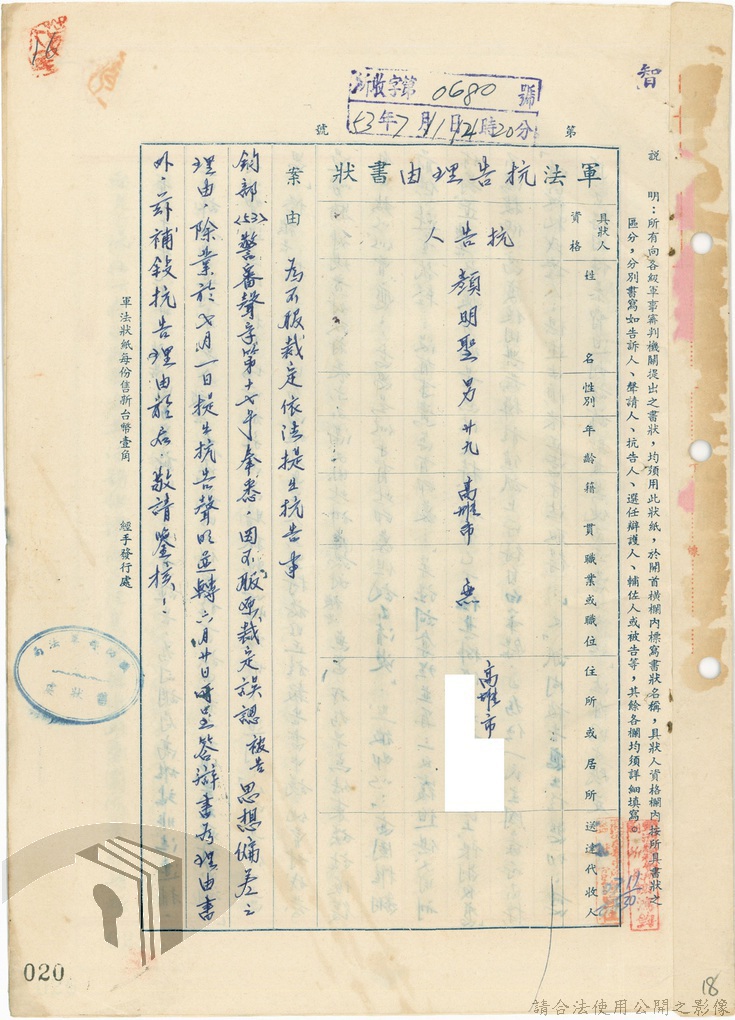 智
新收字第0680號
53年7月1日21時20分
第 號
說 明：所有向各級軍事審判機關提出之書狀，均須用此狀紙，於開首橫欄內標寫書狀名稱，具狀人資格欄內按所具書狀之
區分，分別書寫如告訴人、聲請人、抗告人、選任辯護人、輔佐人或被告等，其餘各欄均須詳細填寫。
軍法抗告理由書狀
具狀人資格 姓名 性別 年齡 籍貫 職業或職位 住所或居所 送達代收人
抗告人 顏明聖 男 廿九 高雄市 無 高雄市
案由 為不服裁定依法提出抗告事
鈞部(53)警審聲字第十七號奉悉，因不服原裁定誤認被告思想偏差之
理由，除業於七月一日提出抗告聲明並轉六月廿日所呈答辯書為理由書
外，茲補敍抗告理由於后，敬請鑒核！
軍法狀紙每份售新台幣壹角 經手發行處
020
18
請合法使用公開之影像